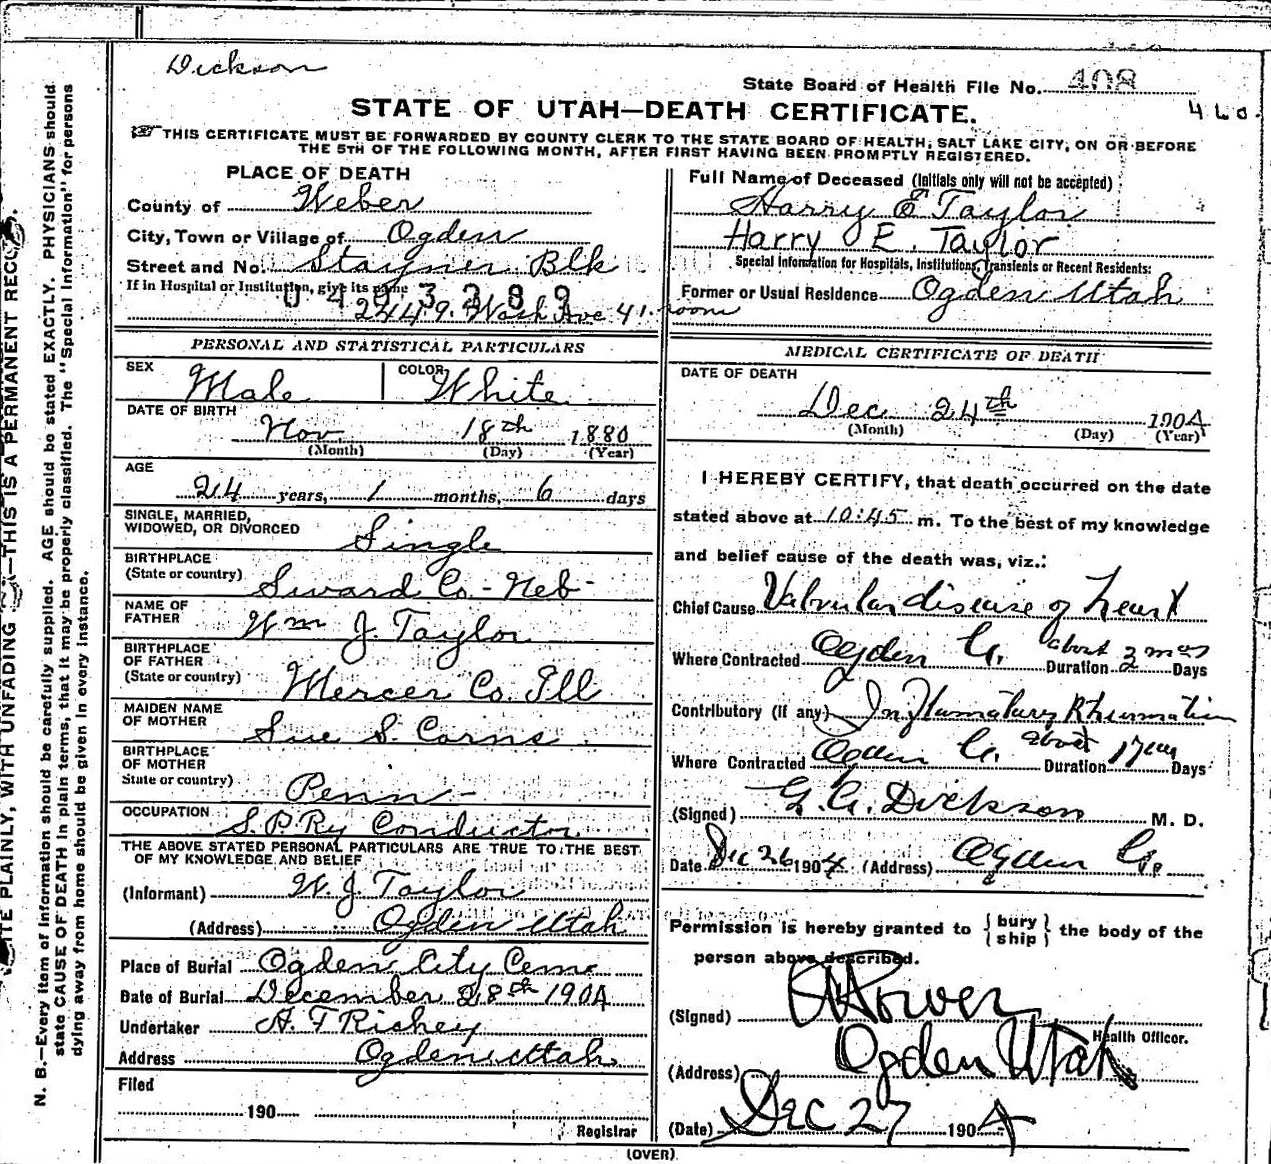 Dickson
State Board of Health File No. 408
460.
STATE OF UTAH—DEATH CERTIFICATE.
THIS CERTIFICATE MUST BE FORWARDED BY COUNTY CLERK TO THE STATE BOARD OF HEALTH, SALT LAKE CITY, ON OR BEFORE
THE 5TH OF THE FOLLOWING MONTH, AFTER FIRST HAVING BEEN PROMPTLY REGISTERED.
PLACE OF DEATH
County of Weber
City, Town or Village of Ogden
Street and No. Stayner Blk
If in Hospital or Institution, give its name
0493289
2449. Wash Ave 41. room
Full Name of Deceased (Initials only will not be accepted)
Harry E Taylor
Harry E. Taylor
Special Information for Hospitals, Institutions, Transients or Recent Residents:
Former or Usual Residence Ogden Utah
PERSONAL AND STATISTICAL PARTICULARS
SEX Male COLOR White
DATE OF BIRTH
Nov 18th 1880
(Month) (Day) (Year)
AGE
24 years, 1 months, 6 days
SINGLE, MARRIED,
WIDOWED, OR DIVORCED Single
BIRTHPLACE
(State or country) Siward Co - Neb -
NAME OF
FATHER Wm J. Taylor
BIRTHPLACE
OF FATHER
(State or country) Mercer Co. Ill
MAIDEN NAME
OF MOTHER Sue S. Corns
BIRTHPLACE
OF MOTHER
State or country) Penn -
OCCUPATION S.P.Ry Conductor
THE ABOVE STATED PERSONAL PARTICULARS ARE TRUE TO THE BEST
OF MY KNOWLEDGE AND BELIEF
(Informant) W. J. Taylor
(Address) Ogden Utah
Place of Burial Ogden City Ceme
Date of Burial December 28th 1904
Undertaker A. F Richey
Address Ogden Utah
Filed
190
Registrar
MEDICAL CERTIFICATE OF DEATH
DATE OF DEATH
Dec 24th 1904
(Month) (Day) (Year)
I HEREBY CERTIFY, that death occurred on the date
stated above at 10:45 m. To the best of my knowledge
and belief cause of the death was, viz.:
Chief Cause Valvular disease of heart
Where Contracted Ogden U. Duration about 2 mos Days
Contributory (if any) Inflamatory Rhumatism
Where Contracted Ogden U. Duration about 1 year Days
(Signed) G. A. Dickson M. D.
Date Dec 26 1904 (Address) Ogden U.
Permission is hereby granted to { bury ship } the body of the
person above described.
(Signed) Power
Health Officer.
(Address) Ogden Utah
(Date) Dec 27 1904
(OVER)
N. B.—Every item of information should be carefully supplied. AGE should be stated EXACTLY. PHYSICIANS should
state CAUSE OF DEATH in plain terms, that it may be properly classified. The "Special Information" for persons
dying away from home should be given in every instance.
PLAINLY, WITH UNFADING THIS IS A PERMANENT